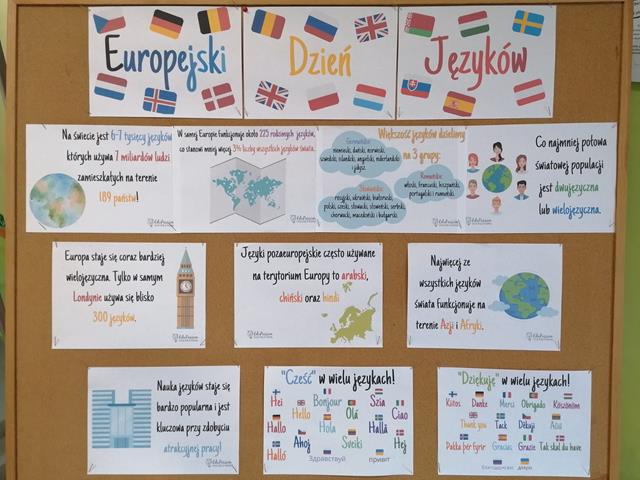 Europejski
Dzień
Języków
Na świecie jest 6-7 tysięcy języków
których używa 7 miliardów ludzi
zamieszkałych na terenie
189 państw!
W samej Europie funkcjonuje około 225 rodzimych języków,
co stanowi mniej więcej 3% liczby wszystkich języków świata.
Większość języków dzielimy
na 3 grupy:
Germańskie:
niemiecki, duński, norweski,
szwedzki, islandzki, angielski, niderlandzki
i jidysz
Romańskie:
włoski, francuski, hiszpański,
portugalski i rumuński.
Słowiańskie:
rosyjski, ukraiński, białoruski,
polski, czeski, słowacki, słoweński, serbski,
chorwacki, macedoński i bułgarski.
Co najmniej połowa
światowej populacji
jest dwujęzyczna
lub wielojęzyczna.
Europa staje się coraz bardziej
wielojęzyczna. Tylko w samym
Londynie używa się blisko
300 języków.
Języki pozaeuropejskie często używane
na terytorium Europy to arabski,
chiński oraz hindi
Najwięcej ze
wszystkich języków
świata funkcjonuje na
terenie Azji i Afryki.
Nauka języków staje się
bardzo popularna i jest
kluczowa przy zdobyciu
atrakcyjnej pracy!
"Cześć" w wielu językach!
Hei Bonjour Szia
Hello Olá Ciao
Hallo Hola Hallå
Ahoj Sveiki Hej
Halló Здравствуй привіт
"Dziękuję" w wielu językach!
Kiitos Danke Merci Obrigado Köszönöm
Thank you Tack Děkuji Ačiū
Þakka þér fyrir Gracias Grazie Tak skal du have
благодарю вас дякую
EduPuzzm